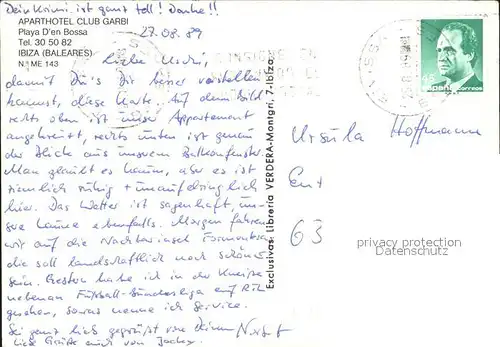 Dein Krimi ist ganz toll! Danke!!
APARTHOTEL CLUB GARBI
Playa D'en Bossa
Tel. 30 50 82
IBIZA (BALEARES)
N.° ME 143
27.08.89
Liebe Uschi,
damit Du's Dir besser vorstellen
kannst, diese Karte. Auf dem Bild
rechts oben ist unser Appartement
angekreuzt, rechts unten ist genau
der Blick aus unserem Balkonfenster.
Man glaubt es kaum, aber es ist
ziemlich ruhig + unaufdringlich
hier. Das Wetter ist sagenhaft, un-
sere Laune ebenfalls. Morgen fahren
wir auf die Nachbarinsel Formentera,
die soll landschaftlich noch schöner
sein. Gestern habe ich in der Kneipe
nebenan Fußball-Bundesliga auf
gesehen, sowas nenne ich Service.
Sei ganz lieb gegrüßt von Deinem Norbert
Liebe Grüße auch von
Exclusivas: Libreria VERDERA-Montgri, 7-Ibiza
España correos
Ursula Hoffmann
63
privacy protection
Datenschutz